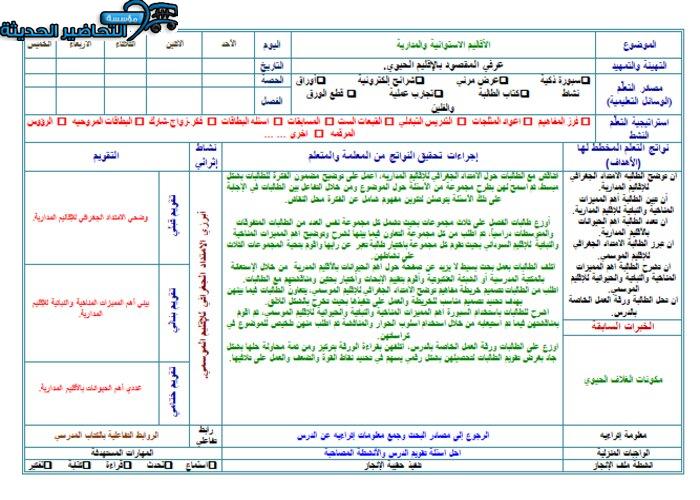 مؤسسة
التحاضير الحديثة
الموضوع
الأقاليم الاستوائية والمدارية
اليوم
الأحد
الاثنين
الثلاثاء
الأربعاء
الخميس
التهيئة والتمهيد
عرفي المقصود بالإقليم الحيوي.
التاريخ
مصادر التعلم
(الوسائل التعليمية)
سبورة ذكية
عرض مرئي
شرائح إلكترونية
أوراق
نشاط
كتاب الطالبة
تجارب عملية
قطع الورق
والفلين
الحصة
الفصل
استراتيجية التعلم
النشط
فرز المفاهيم
اعواد المثلجات
التدريس التبادلي
القبعات الست
المسابقات
اسئلة البطاقات
فكر-زواج-شارك
البطاقات المروحية
الرؤوس
المرقمه
اخرى ... ...
نواتج التعلم المخطط لها
(الأهداف)
إجراءات تحقيق النواتج من المعلمة والمتعلم
نشاط
إثرائي
التقويم
أن توضح الطالبة الامتداد الجغرافي
للإقليم المدارية.
أن تبين الطالبة أهم المميزات
المناخية والنباتية للإقليم المدارية.
أن تعدد الطالبة أهم الحيوانات
بالأقليم المدارية.
أن تبرز الطالبة الامتداد الجغرافي
للإقليم الموسمي.
أن تشرح الطالبة أهم المميزات
المناخية والنباتية والحيوانية للإقليم
الموسمي.
أن تحل الطالبة ورقة العمل الخاصة
بالدرس.
الخبرات السابقة
مكونات الغلاف الحيوي
أناقش مع الطالبات حول الامتداد الجغرافي للإقليم المدارية، أعمل على توضيح مضمون الفقرة للطالبات بشكل
مبسط، ثم أسمح لهن بطرح مجموعة من الأسئلة حول الموضوع ومن خلال التفاعل بين الطالبات في الإجابة
على تلك الأسئلة يتوصلن لتكوين مفهوم شامل عن الفقرة محل النقاش.
أوزع طالبات الفصل على ثلاث مجموعات بحيث تشمل كل مجموعة نفس العدد من الطالبات المتفوقات
والمتوسطات دراسياً، ثم أطلب من كل مجموعة التعاون فيما بينها لشرح وتوضيح أهم المميزات المناخية
والنباتية للإقليم السوداني بحيث تقوم كل مجموعة باختيار طالبة تعبر عن رأيها وأقوم بتحية المجموعات الثلاث
على نشاطهن.
أكلف الطالبات بعمل بحث بسيط لا يزيد عن صفحة حول أهم الحيوانات بالأقليم المدرية من خلال الإستعانة
بالمكتبة المدرسية أو الشبكة العنكبوتية وأقوم بتقييم الأبحاث وأختيار بحثين ومناقشتهم مع الطالبات.
أطلب من الطالبات تصميم خريطة توضح الامتداد الجغرافي للإقليم الموسمي، يتعاون الطالبات فيما بينهن
بهدف تحديد تصميم مناسب للخريطة والعمل على تنفيذها بحيث تخرج بالشكل اللائق.
أشرح للطالبات باستخدام السبورة أهم المميزات المناخية والنباتية والحيوانية للإقليم الموسمي، ثم أقوم
بمناقشتهن فيما تم استيعابه من خلال استخدام أسلوب الحوار والمناقشة ثم أطلب منهن تلخيص للموضوع في
كراساتهن.
أوزع على الطالبات ورقة العمل الخاصة بالدرس، أكلفهن بقراءة الورقة بتركيز ومن ثمة محاولة حلها بشكل
جاد بغرض تقويم الطالبات لتحصيلهن بشكل رقمي يسهم في تحديد نقاط القوة والضعف والعمل على تلافيها.
أبرزي الامتداد الجغرافي للإقليم الموسمي.
تقويم قبلي
وضحي الامتداد الجغرافي للأقاليم المدارية.
تقويم بنائي
بيني أهم المميزات المناخية والنباتية للإقليم
المدارية.
تقويم ختامي
عددي أهم الحيوانات بالأقليم المدارية.
معلومة إثرائيه
الرجوع إلى مصادر البحث وجمع معلومات إثرائيه عن الدرس
رابط
تفاعلي
الروابط التفاعلية بالكتاب المدرسي
الواجبات المنزلية
احل اسئلة تقويم الدرس والأنشطة المصاحبة
المهارات المستهدفة
أنشطة ملف الإنجاز
تنفيذ حقيبة الإنجاز
استماع
تحدث
قراءة
كتابة
تفكير